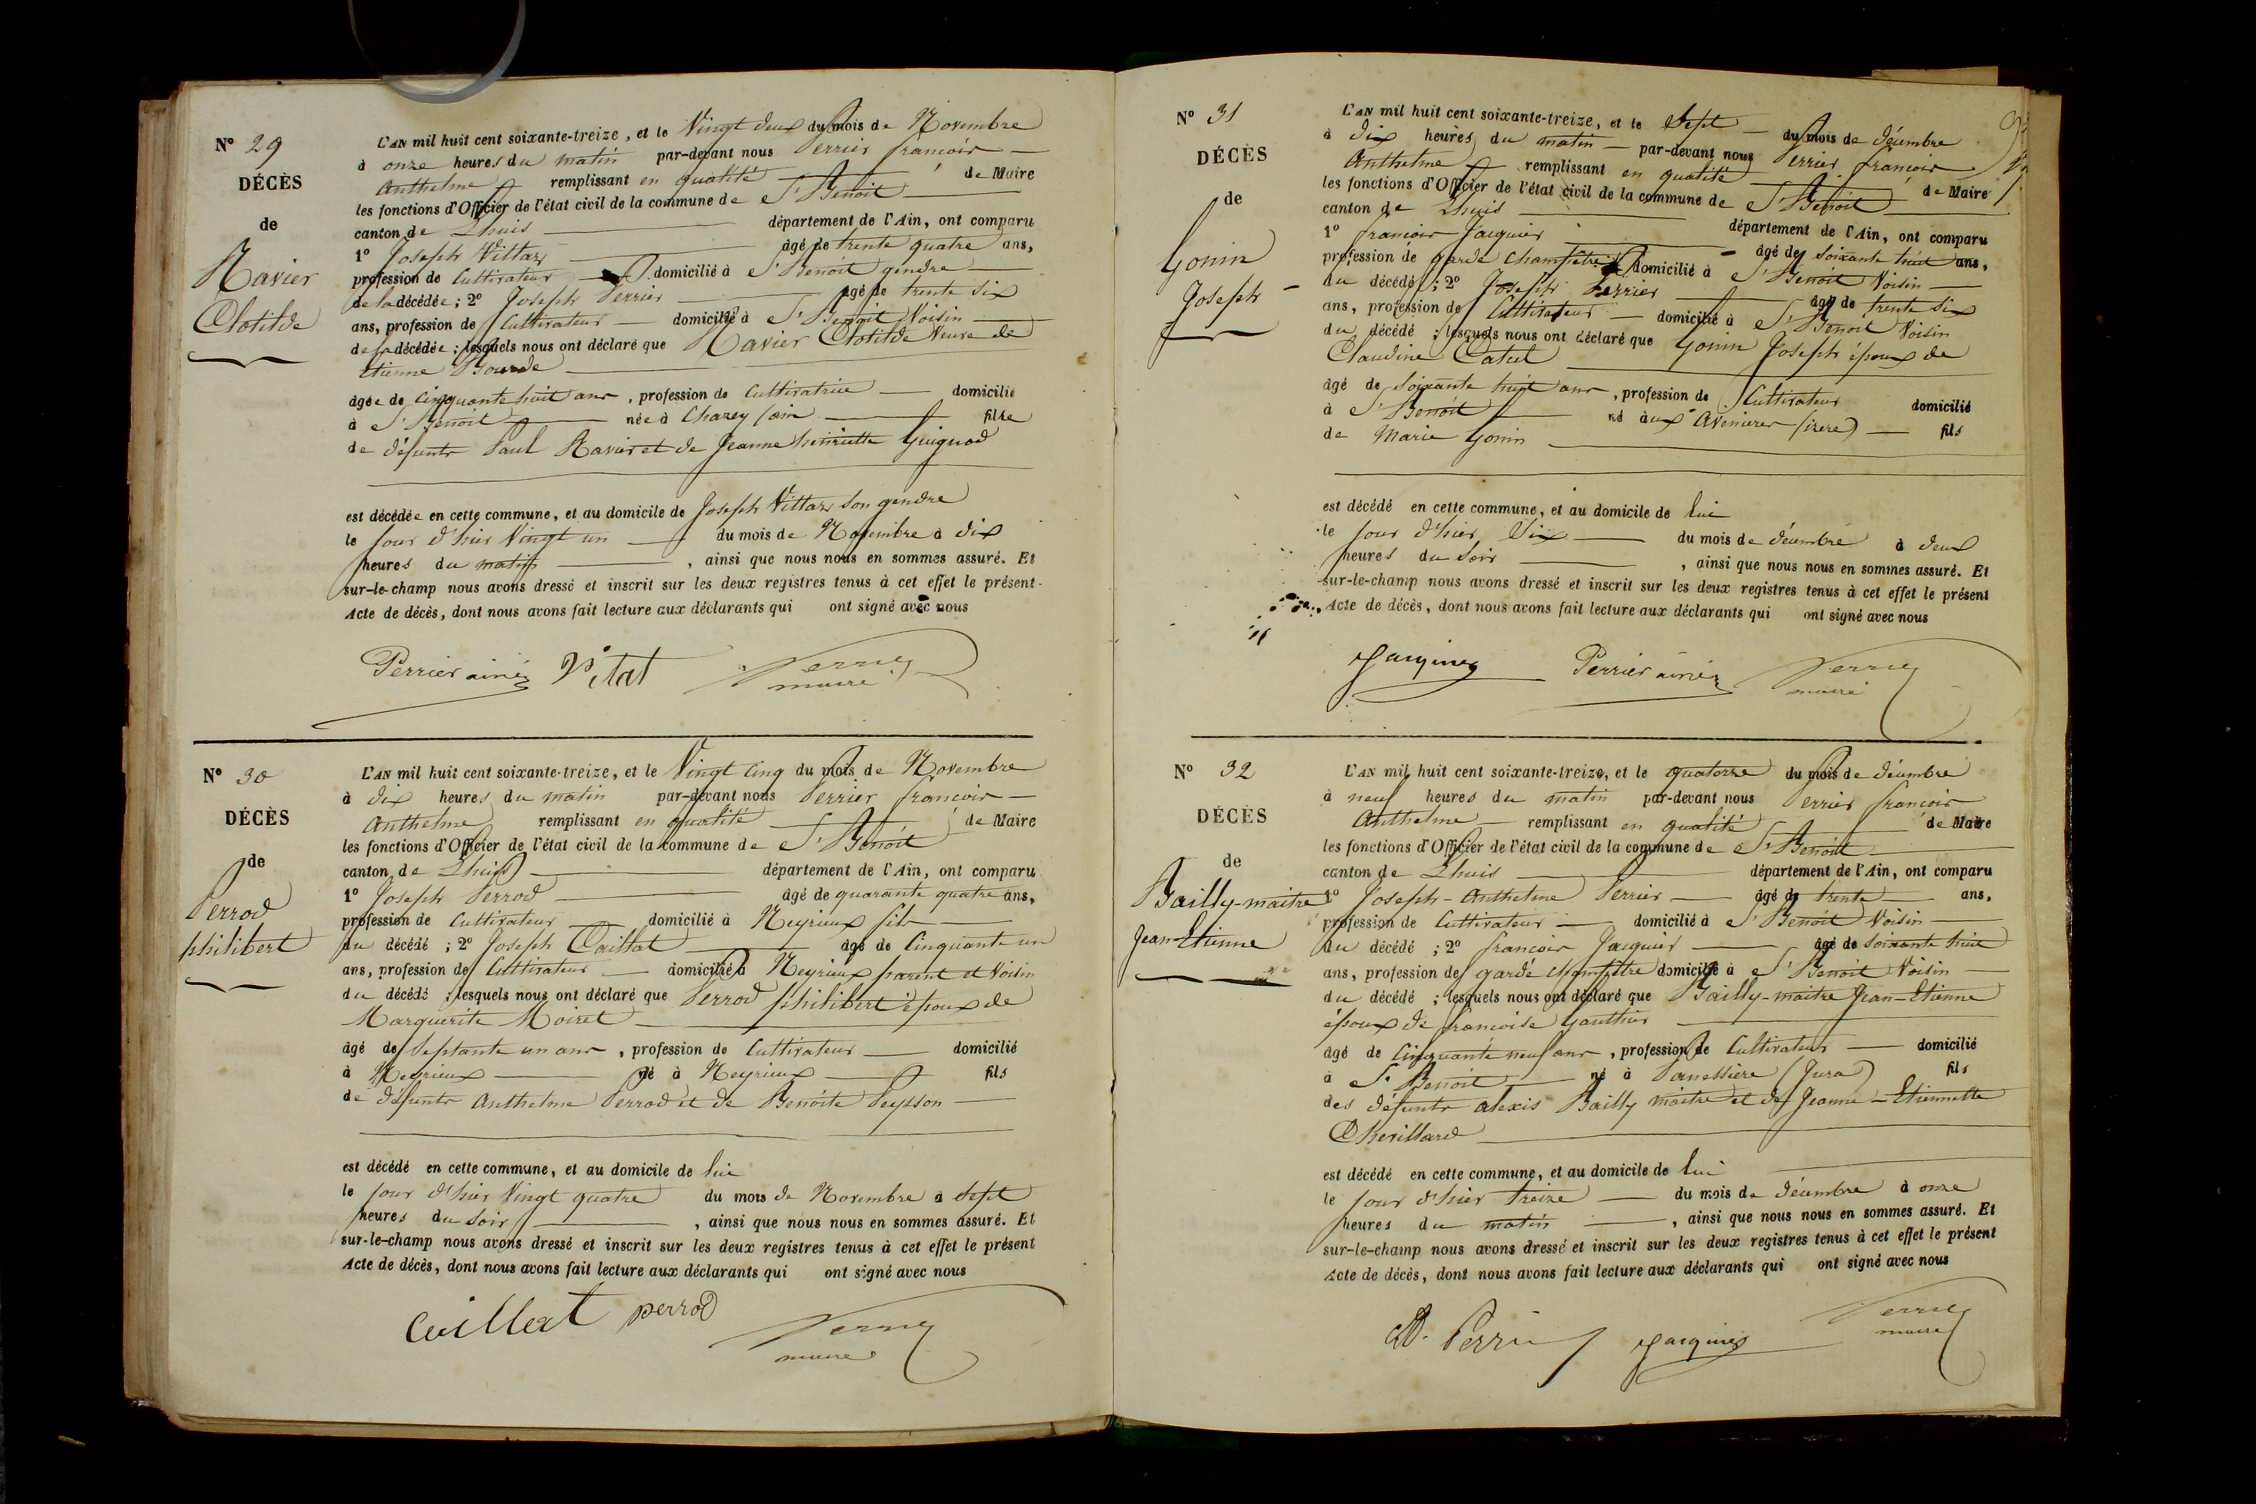 N° 29
DÉCÈS
de
Ravier
Clotilde
L'AN mil huit cent soixante-treize, et le Vingt deux du mois de Novembre
à onze heures du matin par-devant nous Perrier françois
Anthelme remplissant en qualité de Maire
les fonctions d'Officier de l'état civil de la commune de St Benoit
canton de Lhuis département de l'Ain, ont comparu
1° Joseph Vittaz âgé de trente quatre ans,
profession de Cultivateur domicilié à St Benoit gendre
de la décédée ; 2° Joseph Perrier âgé de trente six
ans, profession de Cultivateur domicilié à St Benoit Voisin
de la décédée ; lesquels nous ont déclaré que Ravier Clotilde Veuve de
Etienne Bourde
âgée de Cinquante huit ans, profession de Cultivatrice domicilié
à St Benoit née à Chazey (ain fille
de défunts Paul Ravier et de Jeanne henriette Guignod
est décédée en cette commune, et au domicile de Joseph Vittaz son gendre
le jour d'hier Vingt un du mois de Novembre à dix
heures du matin, ainsi que nous nous en sommes assuré. Et
sur-le-champ nous avons dressé et inscrit sur les deux registres tenus à cet effet le présent
Acte de décès, dont nous avons fait lecture aux déclarants qui ont signé avec nous
Perrier ainé Perrier
maire
N° 30
DÉCÈS
de
Perrod
philibert
L'AN mil huit cent soixante-treize, et le Vingt cinq du mois de Novembre
à dix heures du matin par-devant nous Perrier françois
Anthelme remplissant en qualité de Maire
les fonctions d'Officier de l'état civil de la commune de St Benoit
canton de Lhuis département de l'Ain, ont comparu
1° Joseph Perrod âgé de quarante quatre ans,
profession de Cultivateur domicilié à Meyrieux fils
du décédé ; 2° Joseph Caillat âgé de Cinquante un
ans, profession de Cultivateur domicilié à Meyrieux parent et Voisin
du décédé ; lesquels nous ont déclaré que Perrod philibert époux de
Marguerite Moiret
âgé de Septante un ans, profession de Cultivateur domicilié
à Meyrieux né à Meyrieux fils
de défunts Anthelme Perrod et de Benoite Peysson
est décédé en cette commune, et au domicile de lui
le jour d'hier Vingt quatre du mois de Novembre à Sept
heures du Soir, ainsi que nous nous en sommes assuré. Et
sur-le-champ nous avons dressé et inscrit sur les deux registres tenus à cet effet le présent
Acte de décès, dont nous avons fait lecture aux déclarants qui ont signé avec nous
Caillat perrod Perrier
maire
N° 31
DÉCÈS
de
Gonin
Joseph
L'AN mil huit cent soixante-treize, et le Sept du mois de décembre
à dix heures du matin par-devant nous Perrier françois
Anthelme remplissant en qualité de Maire
les fonctions d'Officier de l'état civil de la commune de St Benoit
canton de Lhuis département de l'Ain, ont comparu
1° françois Jacquier âgé de soixante huit ans,
profession de garde champêtre domicilié à St Benoit Voisin
du décédé ; 2° Joseph Perrier âgé de trente six
ans, profession de Cultivateur domicilié à St Benoit Voisin
du décédé ; lesquels nous ont déclaré que Gonin Joseph époux de
Claudine
âgé de soixante huit ans, profession de Cultivateur domicilié
à St Benoit né aux Avenieres (isere) fils
de Marie Gonin
est décédé en cette commune, et au domicile de lui
le jour d'hier Six du mois de décembre à deux
heures du Soir, ainsi que nous nous en sommes assuré. Et
sur-le-champ nous avons dressé et inscrit sur les deux registres tenus à cet effet le présent
Acte de décès, dont nous avons fait lecture aux déclarants qui ont signé avec nous
Jacquier Perrier ainé Perrier
maire
N° 32
DÉCÈS
de
Bailly-maitre
Jean-Etienne
L'AN mil huit cent soixante-treize, et le quatorze du mois de décembre
à neuf heures du matin par-devant nous Perrier françois
Anthelme remplissant en qualité de Maire
les fonctions d'Officier de l'état civil de la commune de St Benoit
canton de Lhuis département de l'Ain, ont comparu
1° Joseph-Anthelme Perrier âgé de trente ans,
profession de Cultivateur domicilié à St Benoit Voisin
du décédé ; 2° françois Jacquier âgé de soixante huit
ans, profession de garde champêtre domicilié à St Benoit Voisin
du décédé ; lesquels nous ont déclaré que Bailly-maitre Jean-Etienne
époux de françoise Gauthier
âgé de Cinquante neuf ans, profession de Cultivateur domicilié
à St Benoit né à (Jura) fils
des défunts alexis Bailly maitre et de Jeanne-Etiennette
Chevillard
est décédé en cette commune, et au domicile de lui
le jour d'hier treize du mois de décembre à onze
heures du matin, ainsi que nous nous en sommes assuré. Et
sur-le-champ nous avons dressé et inscrit sur les deux registres tenus à cet effet le présent
Acte de décès, dont nous avons fait lecture aux déclarants qui ont signé avec nous
Perrier Jacquier Perrier
maire